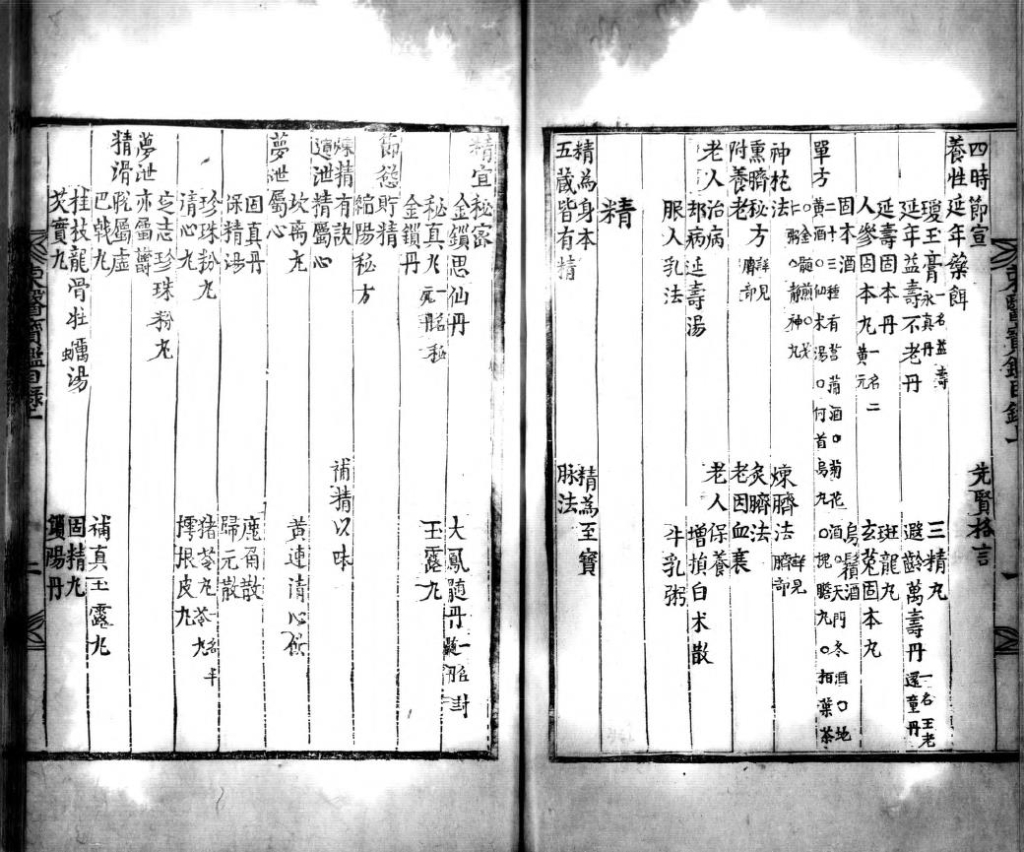 四時節宣 先賢格言
養性延年藥餌
瓊玉膏 一名益壽永真丹 三精丸
延年益壽不老丹 遐齡萬壽丹 一名王老還童丹
延壽固本丹 斑龍丸
人參固本丸 一名二黃元 玄菟固本丸
固本酒 烏鬚酒
單方 二十三種有菖蒲酒○菊花酒○天門冬酒○地黃酒○仙朮湯○何首烏丸○槐膽丸○栢葉茶
神枕法 煉臍法 詳見臍部
熏臍秘方 詳見臍部 灸臍法
附養老 老因血衰
老人治病 老人保養
却病延壽湯 增損白朮散
服人乳法 牛乳粥
精
精為身本 精為至寶
五藏皆有精 脉法
精宜秘密
金鎖思仙丹 大鳳髓丹
秘真丸 玉露丸
金鎖丹
節慾貯精
縮陽秘方
煉精有訣 補精以味
遺泄精屬心
坎离丸 黃連清心飲
夢泄屬心
固真丹 鹿角散
保精湯 歸元散
珍珠粉丸 猪苓丸
清心丸 樗根皮丸
夢泄亦屬鬱
夢泄屬虛
巴戟丸 補真玉露丸
精滑
桂枝龍骨牡蠣湯 固精丸
芡實丸 鎖陽丹
東醫寶鑑目錄上 二